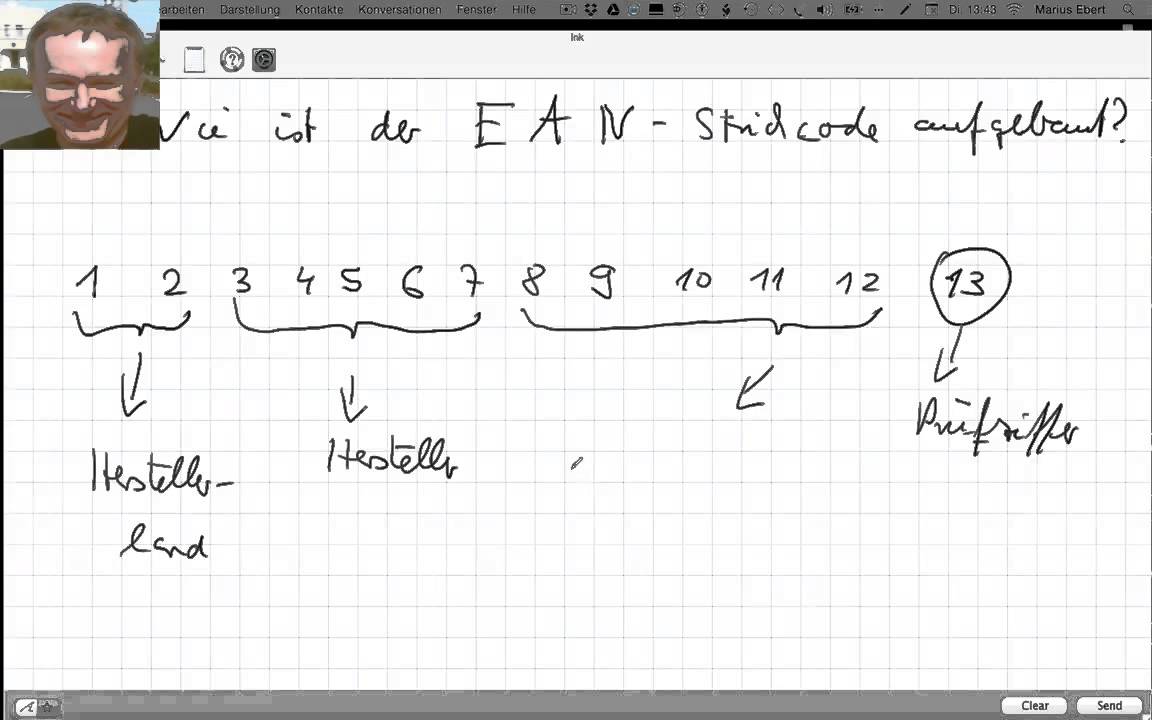 arbeiten Darstellung Kontakte Konversationen Fenster Hilfe Di. 13:43 Marius Ebert
Ink
Wie ist der EAN-Strichcode aufgebaut?
1 2 3 4 5 6 7 8 9 10 11 12 13
Prüfziffer
Hersteller
Hersteller-
land
Clear Send